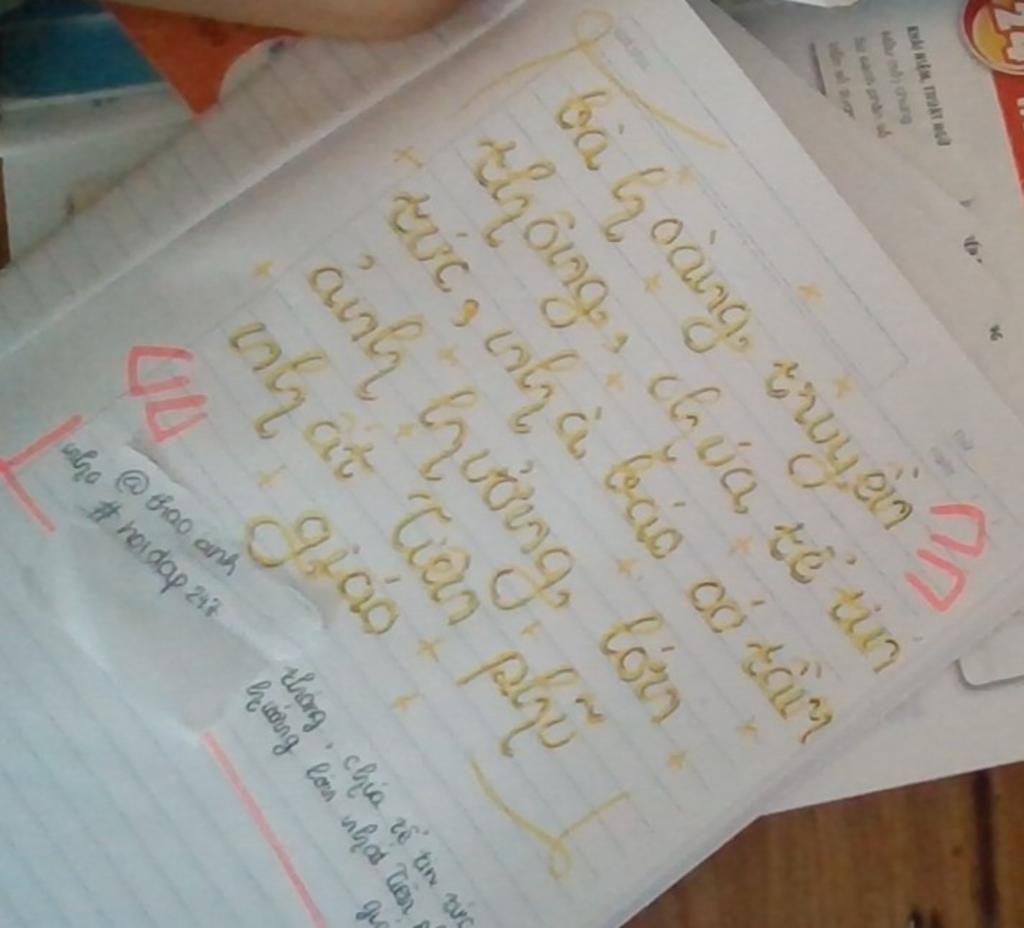 bà hoàng truyền
thông, chúa tể tin
tức, nhà báo có tầm
ảnh hưởng lớn
nhất Tiên phũ
giáo
@thao anh
#hoidap247
thông, chúa tể tin tức
hưởng lớn nhất Tiên
KHÁI NIỆM, THUẬT NGỮ